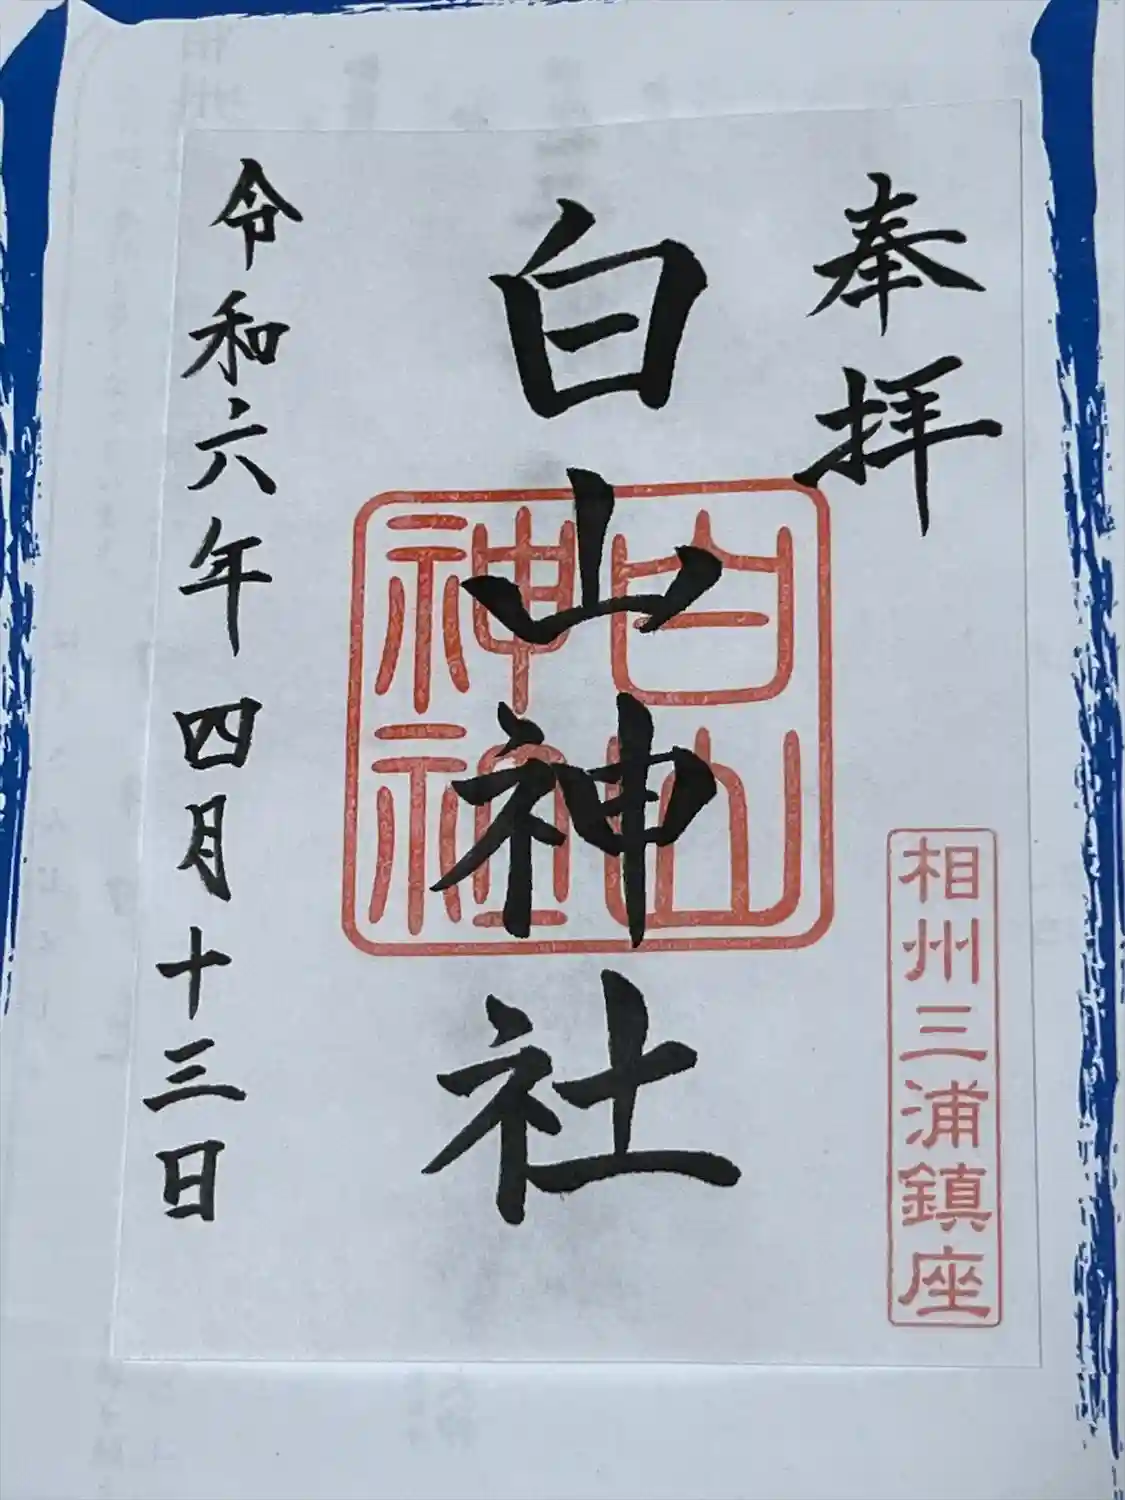 奉拝
相州三浦鎮座
白山神社
白山
神社
令和六年四月十三日